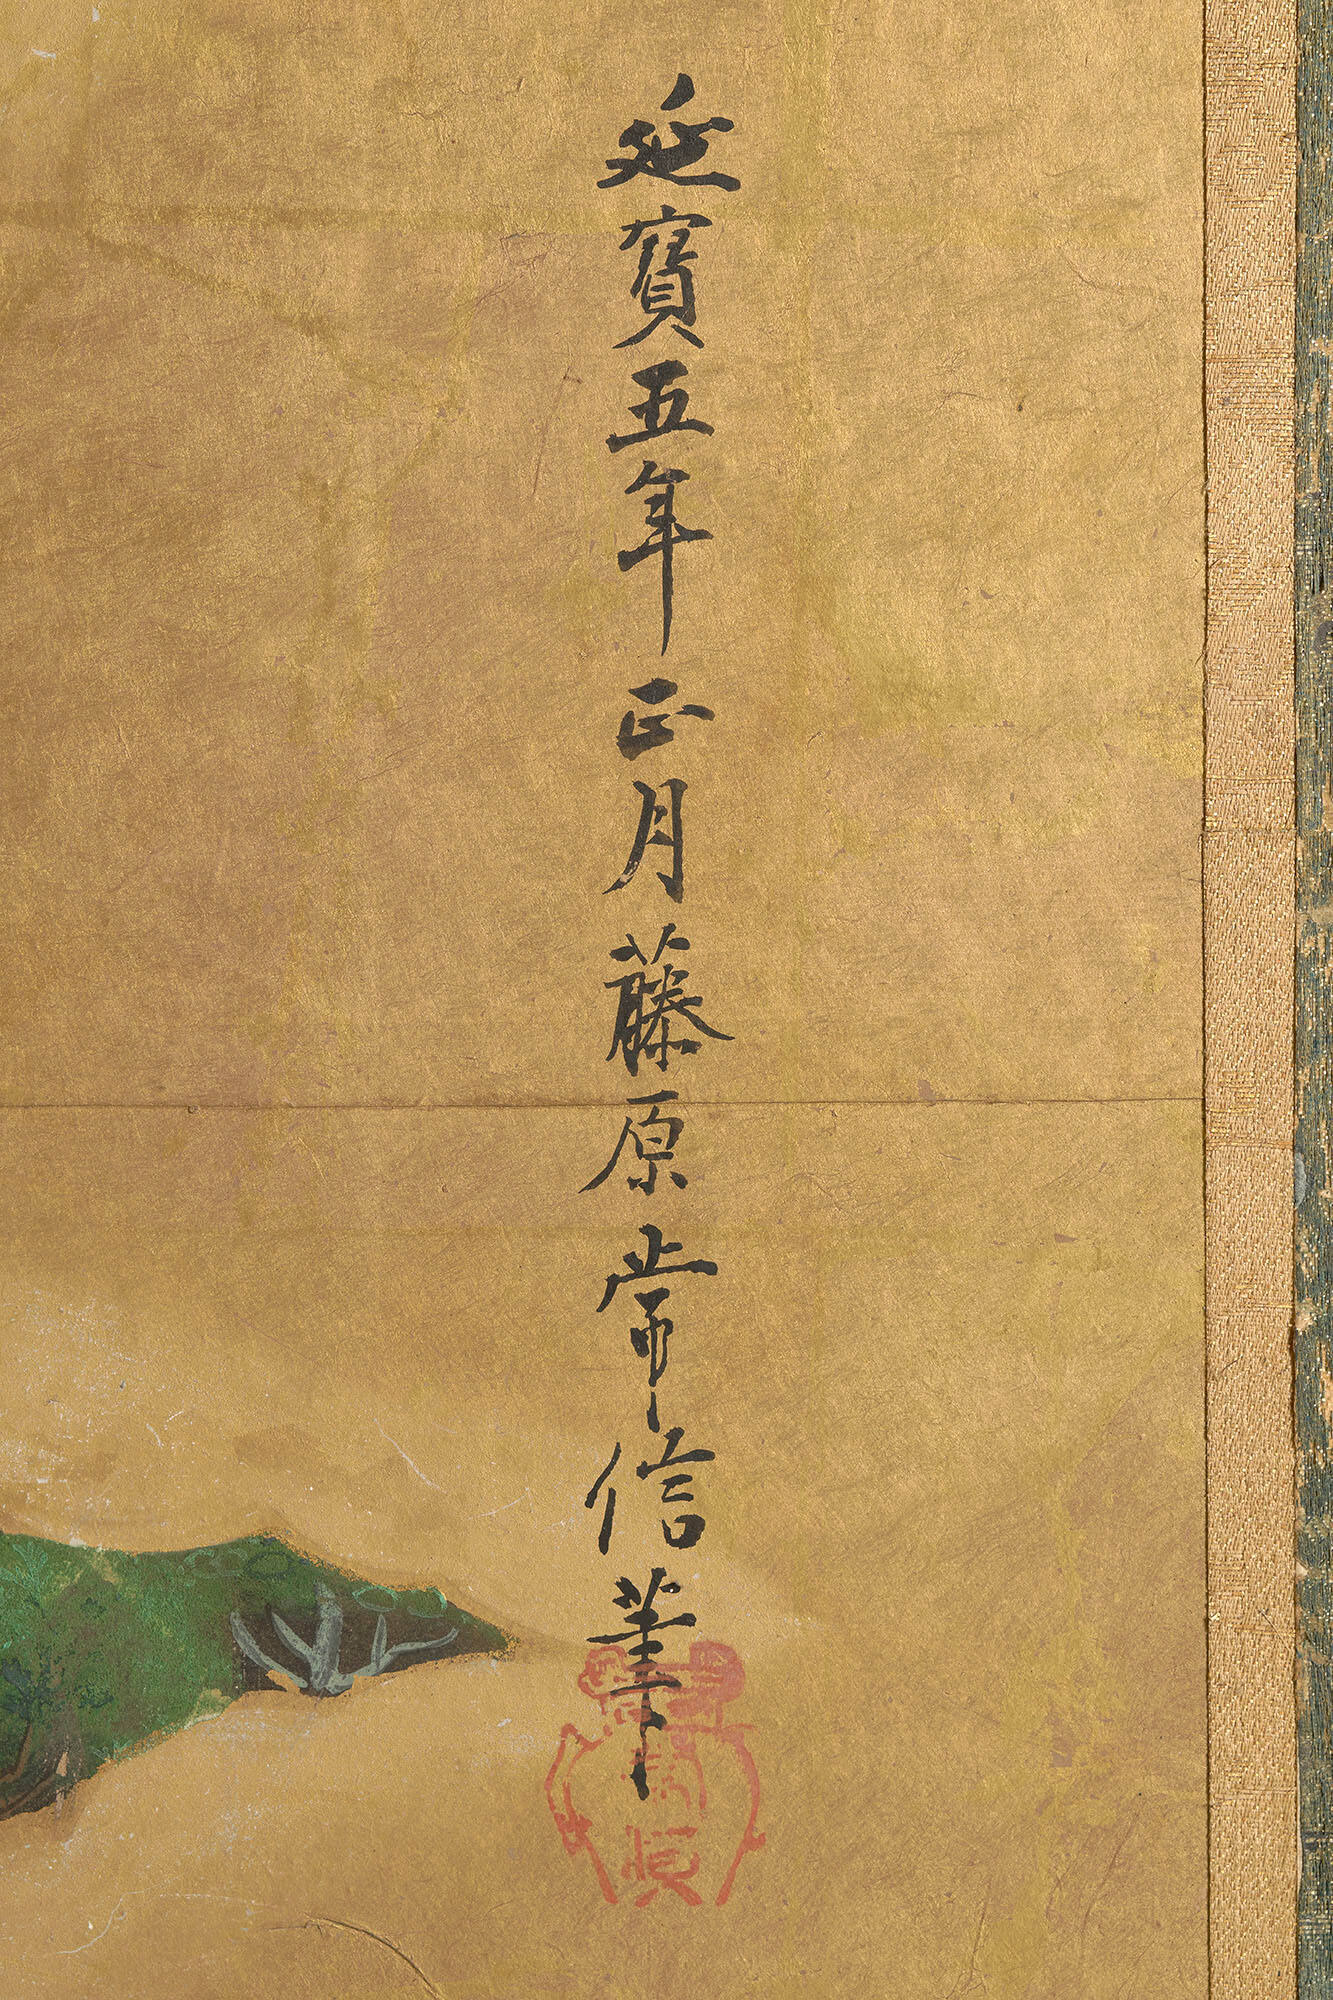 延寳五年正月藤原常信筆